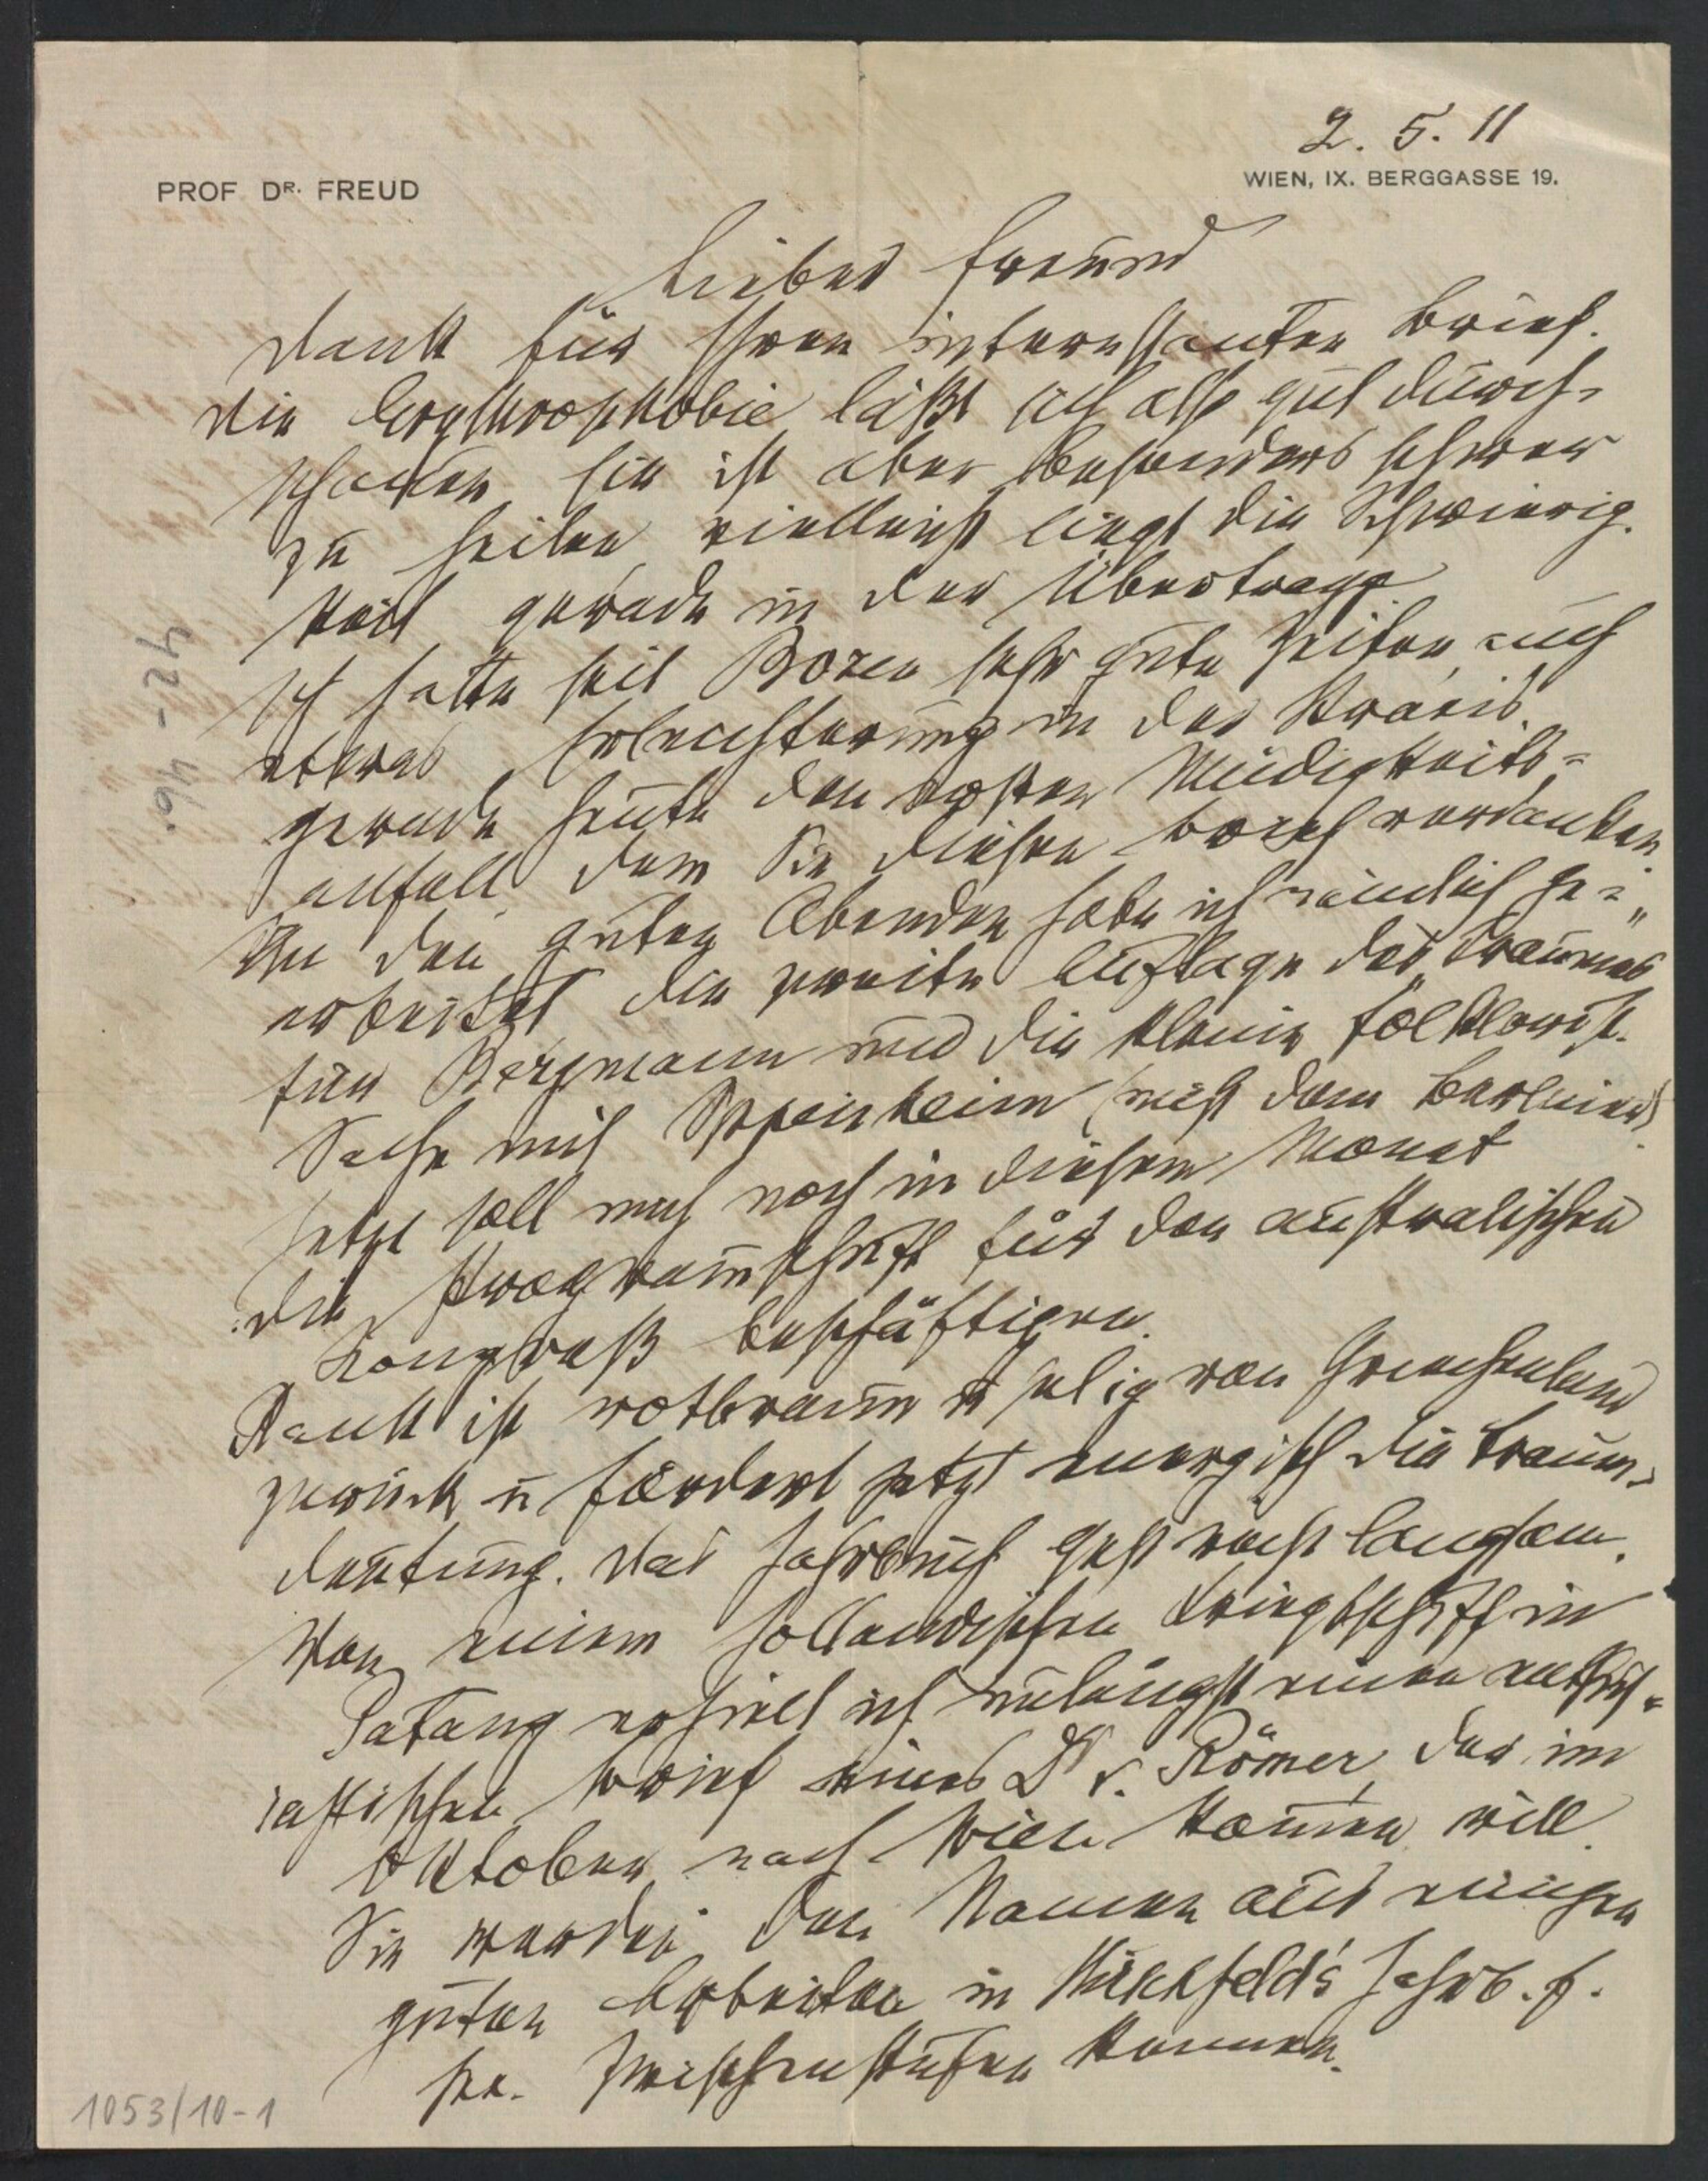 2. 5. 11
PROF. DR. FREUD
WIEN, IX. BERGGASSE 19.
Lieber Freund
Dank für Ihren interessanten Brief.
Die Erythrophobie läßt sich also gut durch-
schauen, sie ist aber besonders schwer
zu heilen, vielleicht liegt die Schwierig-
keit gerade in der Übertragg
Ich hatte seit Bozen sehr gute Zeiten, auch
etwas Erleichterung in der Praxis,
gerade heute den ersten Müdigkeits-
anfall, dem Sie diesen Brief verdanken
An den guten Abenden habe ich nämlich ge-
arbeitet, die zweite Auflage des „Traumes"
für Bergmann und die kleine folklorist.
Sache mit Oppenheim (nicht dem Berliner)
Jetzt soll mich noch in diesem Monat
die Programmschrift für den australischen
Kongreß beschäftigen.
Rank ist rotbraun u selig von Griechenland
zurück u fördert jetzt energisch die Traum-
deutung. Das Jahrbuch geht recht langsam.
Von einem holländischen Kriegsschiff in
Patang erhielt ich unlängst einen enthusi-
astischen Brief eines Dr v. Römer, der im
Oktober nach Wien kommen will.
Sie werden den Namen aus einigen
guten Arbeiten in Hirschfeld's Jahrb. f.
sex. Zwischenstufen kennen.
42-46.
1053/10-1